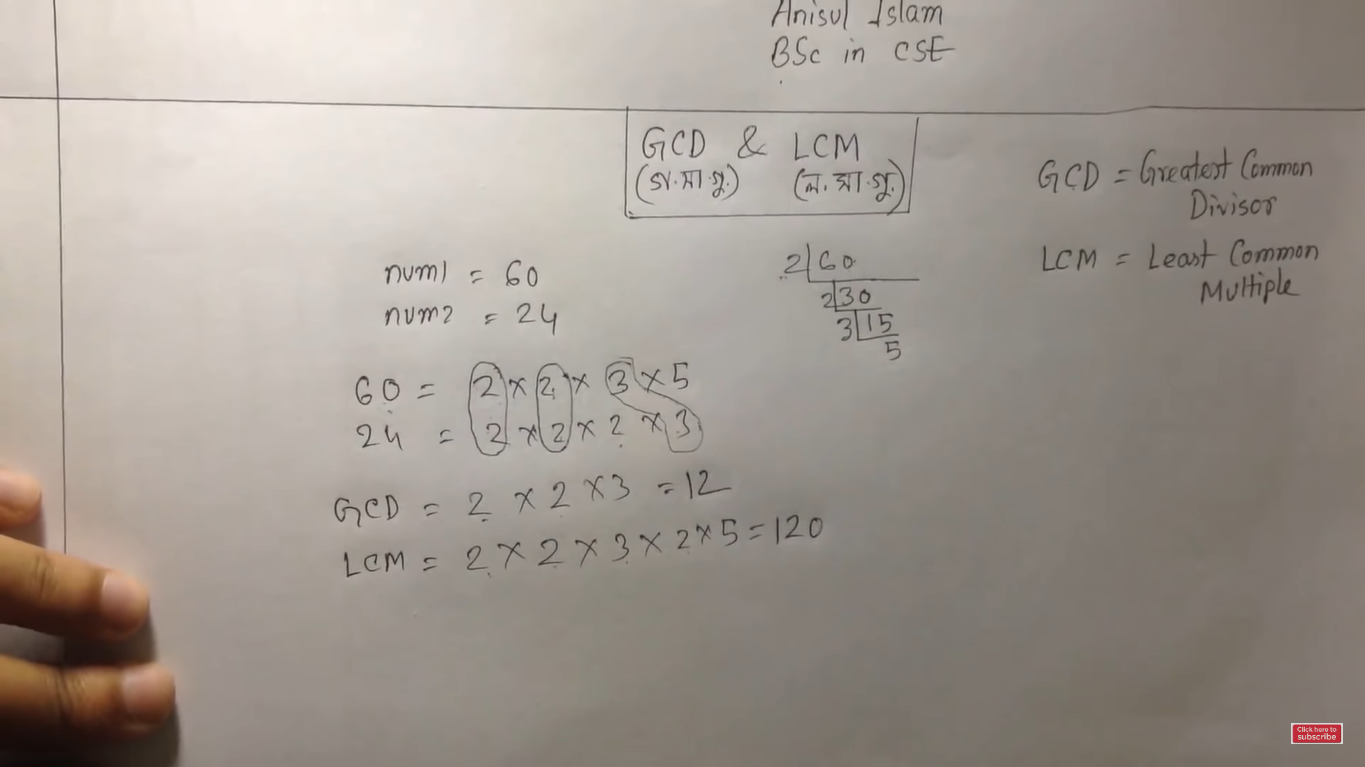 Anisul Islam
BSc in CSE
GCD & LCM
(গ.সা.গু.) (ল.সা.গু.)
GCD = Greatest Common
Divisor
LCM = Least Common
Multiple
num1 = 60
num2 = 24
2 60
2 30
3 15
5
60 = 2 × 2 × 3 × 5
24 = 2 × 2 × 2 × 3
GCD = 2 × 2 × 3 = 12
LCM = 2 × 2 × 3 × 2 × 5 = 120
Click here to
subscribe